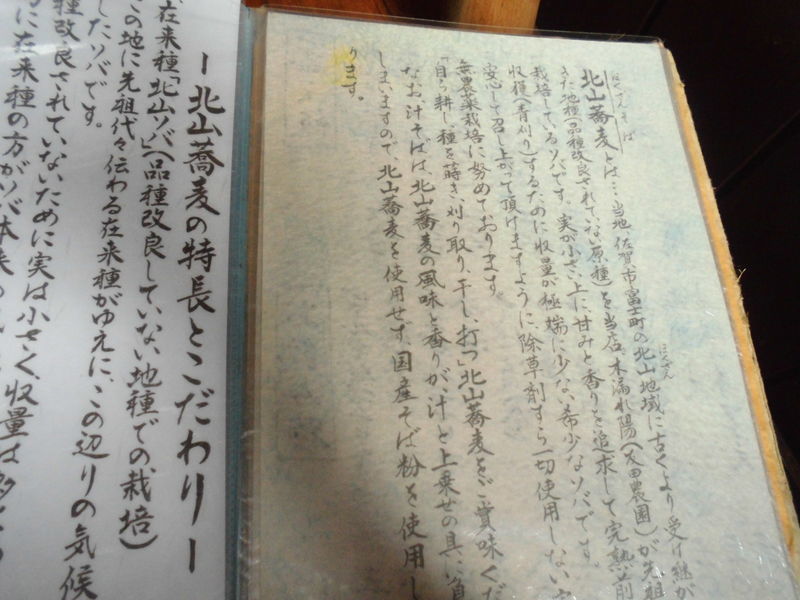 ほくざんそば
北山蕎麦とは…当地 佐賀市富士町の北山地域に古くより受け継が
ほくざん
きた地種(品種改良されていない原種)を当店、木漏れ陽(友田農園)が先祖
栽培しているソバです。実が小さい上に、甘みと香りを追求して完熟前
収穫(青刈り)するために収量が極端に少ない希少なソバです。
安心して召し上がって頂けますように、除草剤すら一切使用しない完
無農薬栽培に努めております。
「自ら耕し種を蒔き、刈り取り、干し、打つ」北山蕎麦をご賞味くだ
なお、汁そばは、北山蕎麦の風味と香りが、汁と上乗せの具に負
しまいますので、北山蕎麦を使用せず、国産そば粉を使用し
ります。
ー北山蕎麦の特長とこだわりー
在来種「北山ソバ」(品種改良していない地種での栽培)
この地に先祖代々伝わる在来種がゆえに、この辺りの気候
したソバです。
種改良されていないために実は小さく、収量は
に在来種の方がソバ本来の